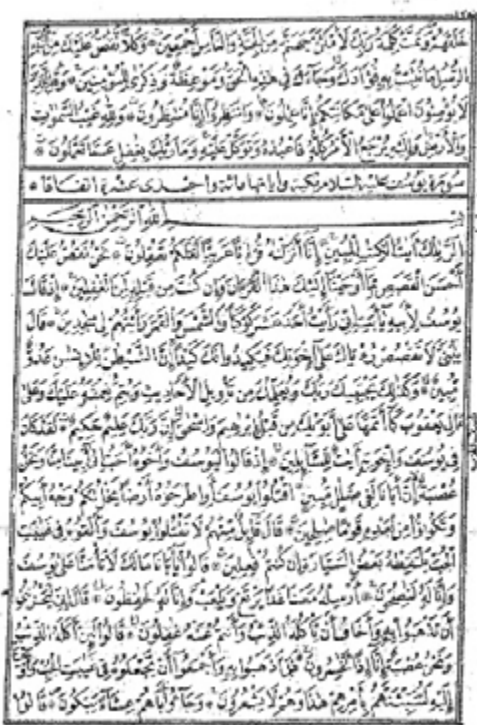 خلقهم وتمت كلمة ربك لأملأن جهنم من الجنة والناس أجمعين وكلا نقص عليك من أنباء
الرسل ما نثبت به فؤادك وجاءك في هذه الحق وموعظة وذكرى للمؤمنين وقل للذين
لا يؤمنون اعملوا على مكانتكم إنا عاملون وانتظروا إنا منتظرون ولله غيب السموات
والأرض وإليه يرجع الأمر كله فاعبده وتوكل عليه وما ربك بغافل عما تعملون
سورة يوسف عليه السلام مكية وآياتها مائة واحدى عشرة اتفاقا
بسم الله الرحمن الرحيم
الر تلك آيت الكتب المبين إنا أنزلنه قرءنا عربيا لعلكم تعقلون نحن نقص عليك
أحسن القصص بما أوحينا إليك هذا القرءان وإن كنت من قبله لمن الغفلين إذ قال
يوسف لأبيه يأبت إني رأيت أحد عشر كوكبا والشمس والقمر رأيتهم لي سجدين قال
يبني لا تقصص رءياك على إخوتك فيكيدوا لك كيدا إن الشيطن للإنسن عدو
مبين وكذلك يجتبيك ربك ويعلمك من تأويل الأحاديث ويتم نعمته عليك وعلى
ءال يعقوب كما أتمها على أبويك من قبل إبرهيم وإسحق إن ربك عليم حكيم لقد كان
في يوسف وإخوته ءايت للسائلين إذ قالوا ليوسف وأخوه أحب إلى أبينا منا ونحن
عصبة إن أبانا لفي ضلل مبين اقتلوا يوسف أو اطرحوه أرضا يخل لكم وجه أبيكم
وتكونوا من بعده قوما صلحين قال قائل منهم لا تقتلوا يوسف وألقوه في غيبت
الجب يلتقطه بعض السيارة إن كنتم فعلين قالوا يأبانا مالك لا تأمنا على يوسف
وإنا له لنصحون أرسله معنا غدا يرتع ويلعب وإنا له لحفظون قال إني ليحزنني
أن تذهبوا به وأخاف أن يأكله الذئب وأنتم عنه غفلون قالوا لئن أكله الذئب
ونحن عصبة إنا إذا لخسرون فلما ذهبوا به وأجمعوا أن يجعلوه في غيبت الجب وأوحينا
إليه لتنبئنهم بأمرهم هذا وهم لا يشعرون وجاءو أباهم عشاء يبكون قالوا